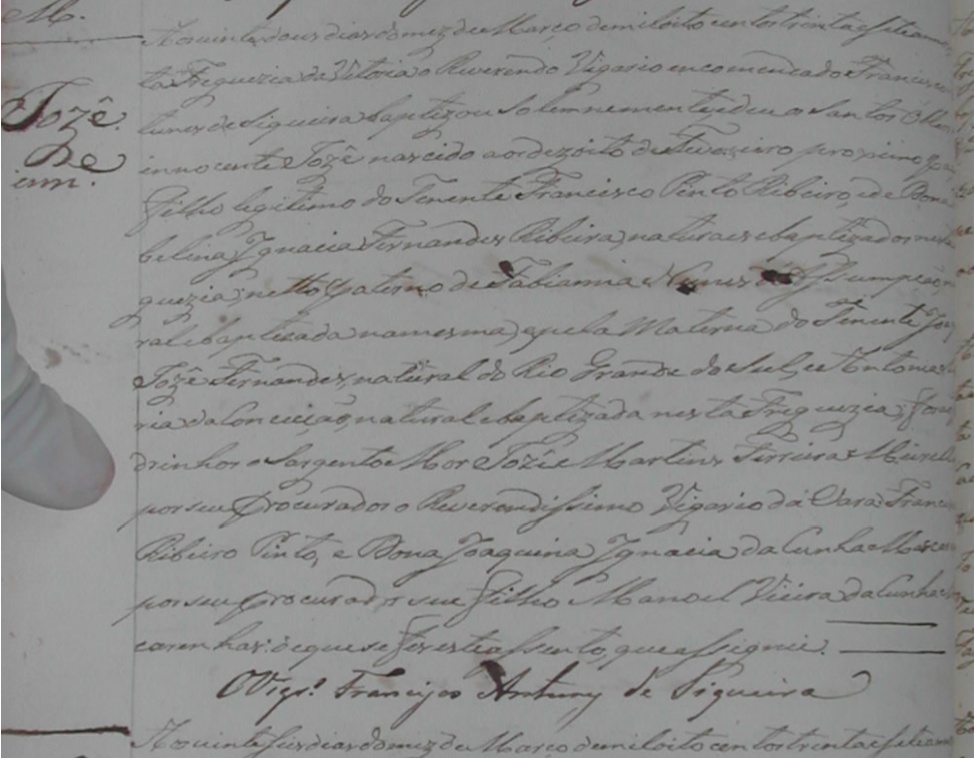 M.
Aos vinte dous dias do mez de Março de mil oito centos trinta e sete annos
ta Freguezia da Vitoria o Reverendo Vigario encomendado Francisco
Jozê
tunes de Siqueira baptizou solemnemente, e deu os Santos Oleos
De
innocente Jozê nascido aos dezoito de Fevereiro proximo
inn.
Filho legitimo do Tenente Francisco Pinto Ribeiro, e de Dona
belina Ignacia Fernandes Ribeira, naturaes e baptizados nesta
guezia; netto paterno de Fabianna Nunes
ral e baptizada na mesma, e pela Materna do Tenente
Jozê Fernandes, natural do Rio Grande do Sul, e Antonia
ria da Conceição, natural e baptizada nesta Freguezia;
drinhos o Sargento Mor Jozê Martins Ferreira
por seu Procurador o Reverendissimo Vigario da Vara Francisco
Ribeiro Pinto, e Dona Joaquina Ignacia da Cunha Mas
por seu procurador seu Filho Manoel Vieira da Cunha
carenhas: de que se fez este assento, que assignei.
O Vigr.º Francisco Antunes de Siqueira
Aos vinte seis dias do mez de Março de mil oito centos trinta e sete annos